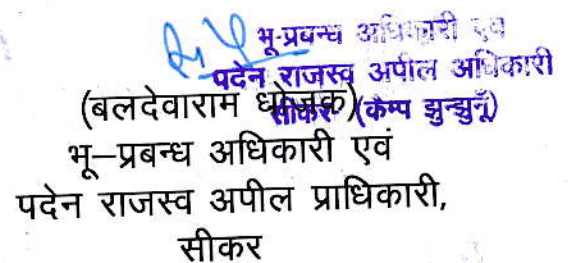 भू-प्रबन्ध अधिकारी एवं
पदेन राजस्व अपील अधिकारी
सीकर (कैम्प झुन्झुनूँ)
(बलदेवाराम धोजक)
भू–प्रबन्ध अधिकारी एवं
पदेन राजस्व अपील प्राधिकारी,
सीकर